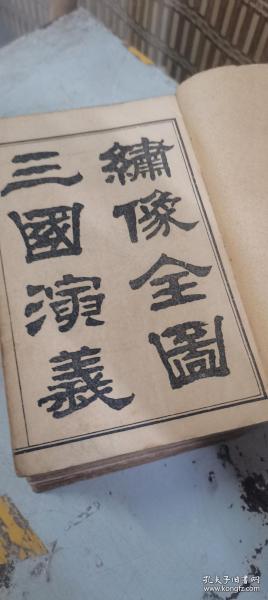 繡像全圖
三國演義
孔夫子旧书网
www.kongfz.com